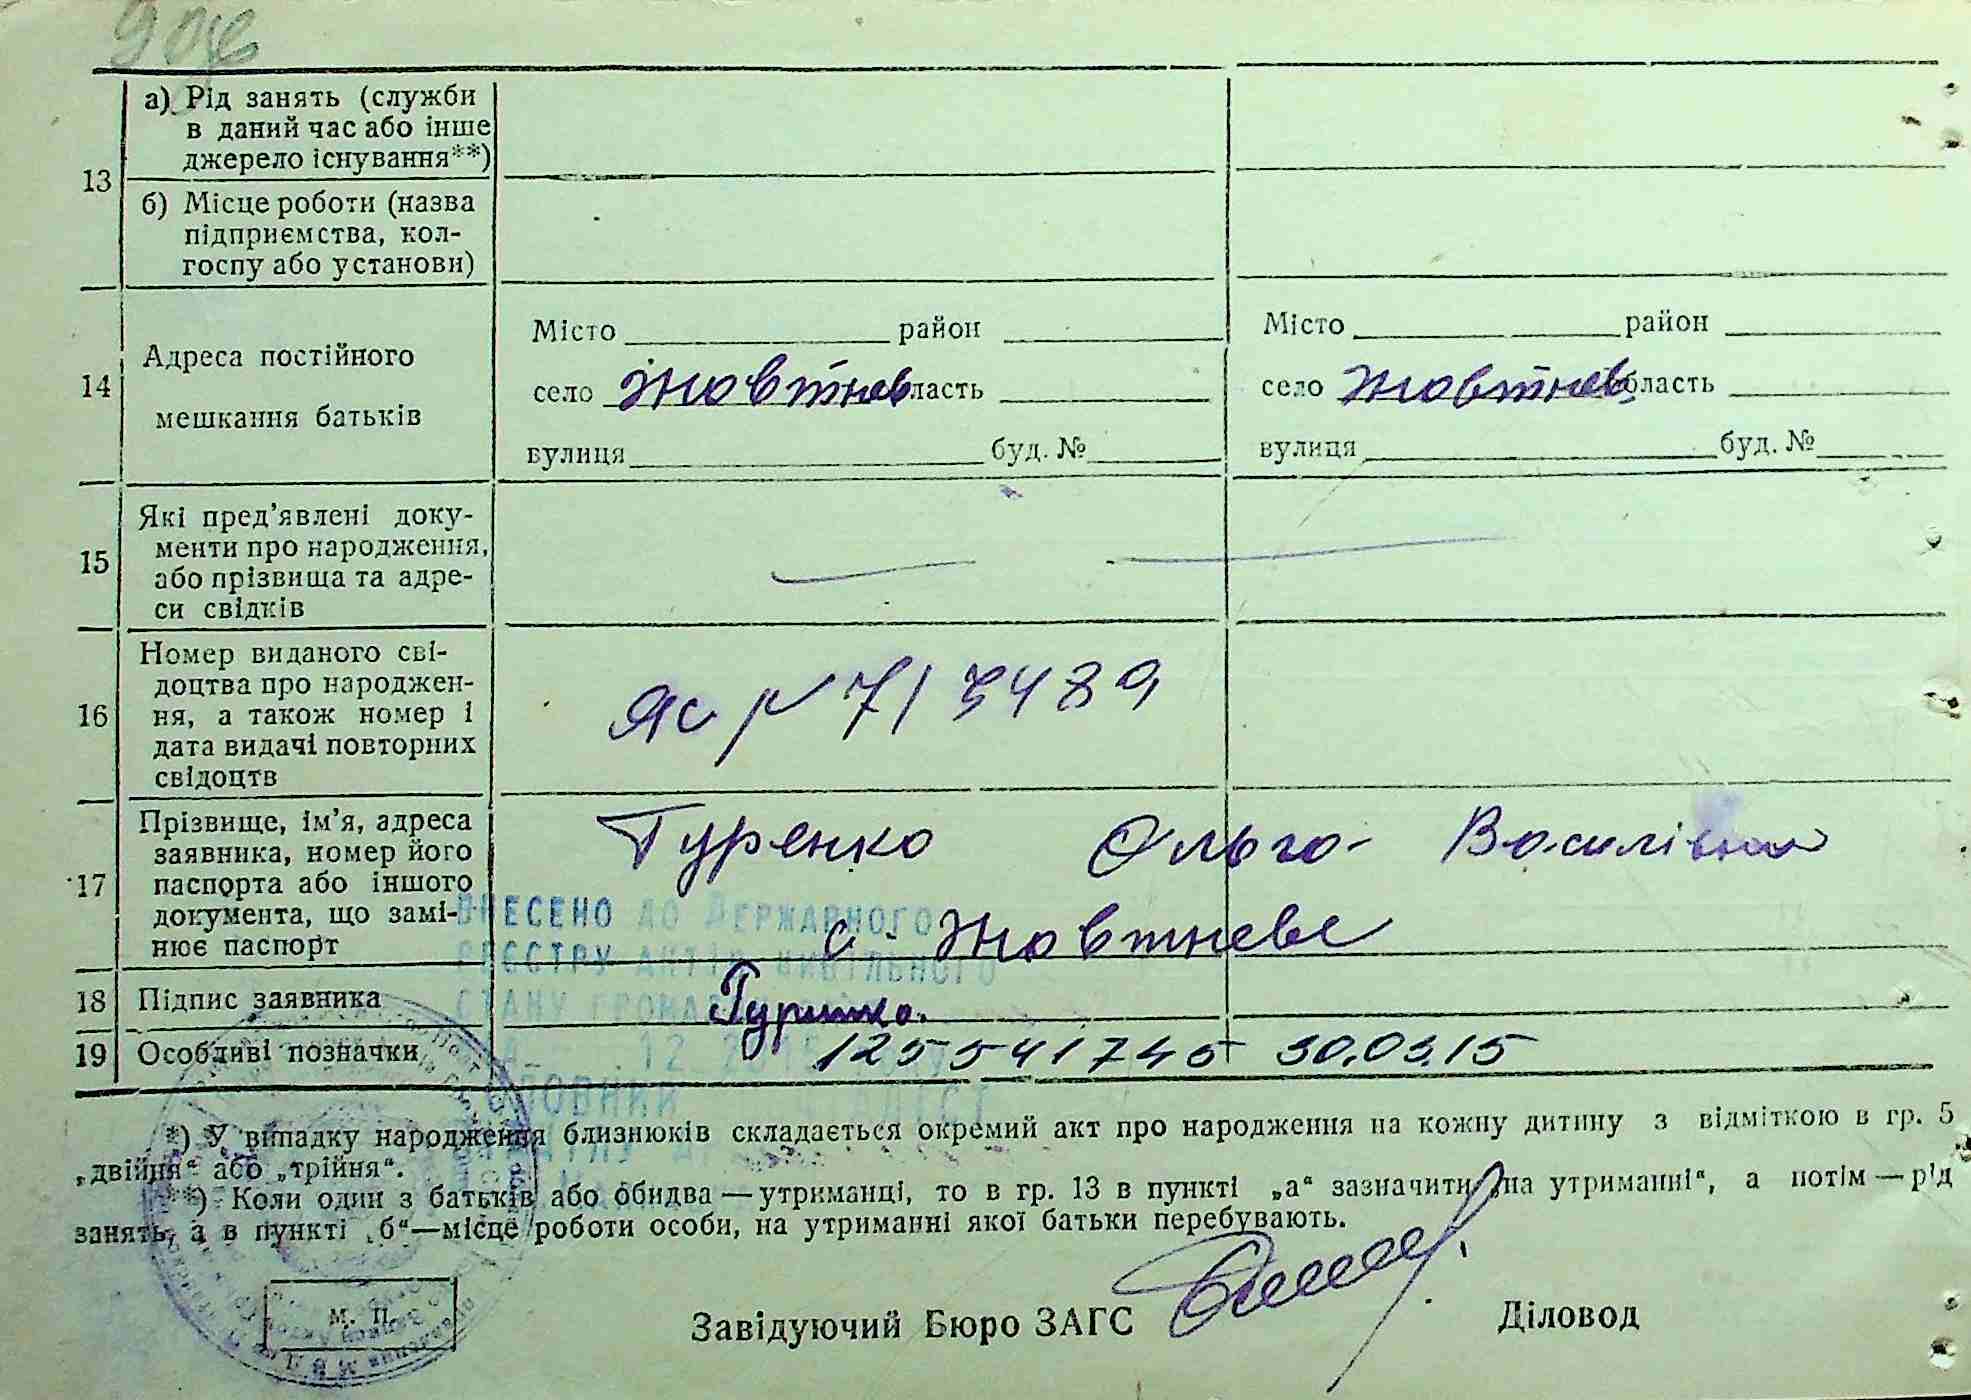 а) Рід занять (служби
в даний час або інше
джерело існування**)
13
б) Місце роботи (назва
підприємства, кол-
госпу або установи)
Місто район Місто район
Адреса постійного
14 село Жовтнев ласть село Жовтнев область
мешкання батьків
вулиця буд. № вулиця буд. №
Які пред’явлені доку-
менти про народження,
15 або прізвища та адре-
си свідків
Номер виданого сві-
доцтва про народжен-
16 ня, а також номер і
дата видачі повторних
свідоцтв
Яс № 713489
Прізвище, ім’я, адреса
заявника, номер його
17 паспорта або іншого
документа, що замі-
нює паспорт
Гуренко Ольга Василівна
с. Жовтневе
ВНЕСЕНО ДО ДЕРЖАВНОГО
РЕЄСТРУ АКТІВ ЦИВІЛЬНОГО
СТАНУ ГРОМАДЯН
18 Підпис заявника Гуренко
19 Особливі позначки 125541745 30.03.15
*) У випадку народження близнюків складається окремий акт про народження на кожну дитину з відміткою в гр. 5
„двійня“ або „трійня“.
**) Коли один з батьків або обидва — утриманці, то в гр. 13 в пункті „а“ зазначити „на утриманні“, а потім — рід
занять, а в пункті „б“—місце роботи особи, на утриманні якої батьки перебувають.
М. П.
Завідуючий Бюро ЗАГС Діловод